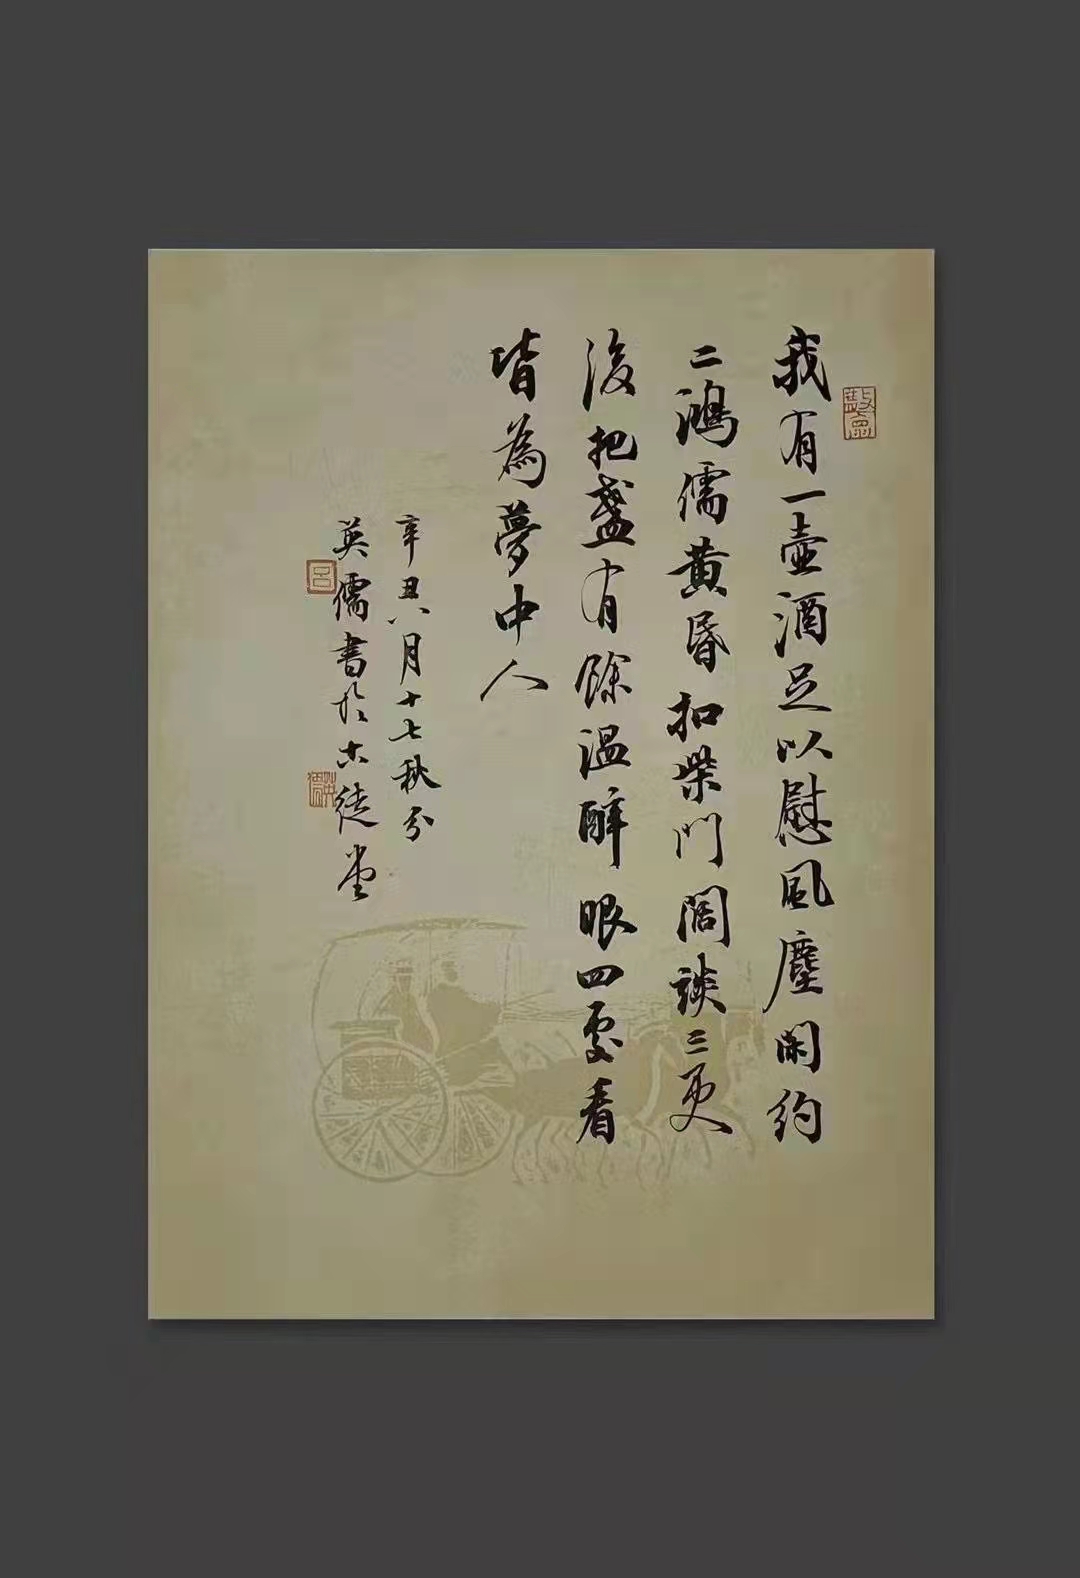 我有一壺酒足以慰風塵閑約
二鴻儒黄昏扣柴門闊談三更
後把盞有餘温醉眼四處看
皆為夢中人
辛丑八月十七秋分
英儒書於木徒堂